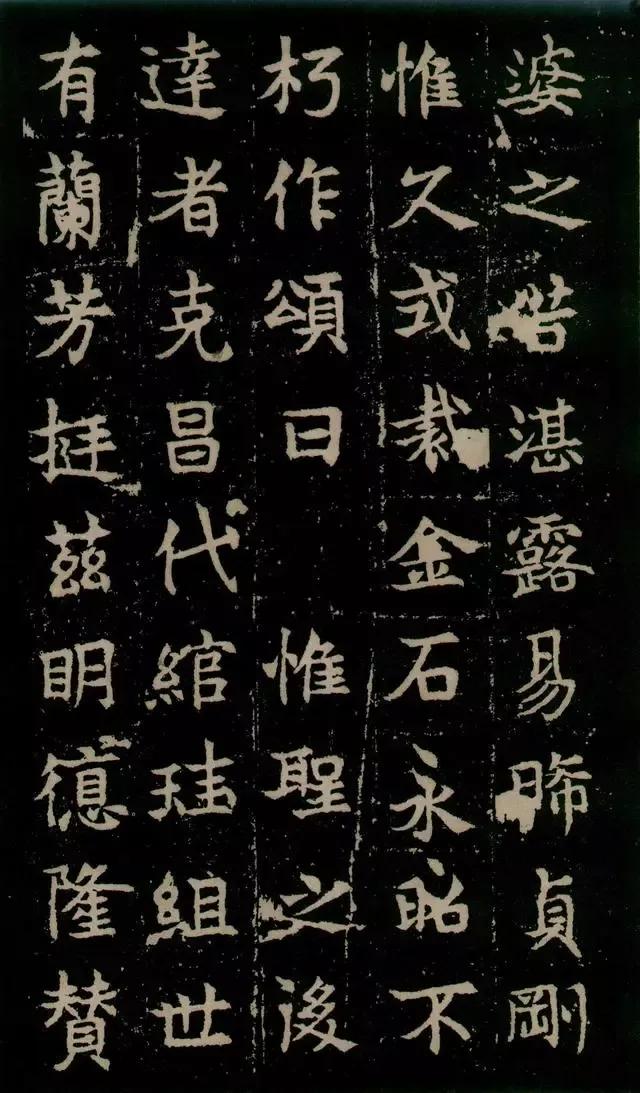 婆之湛露易晞貞剛
惟久式裁金石永昭不
朽作頌曰　惟聖之後
達者克昌代綰珪組世
有蘭芳挺茲明德隆贊